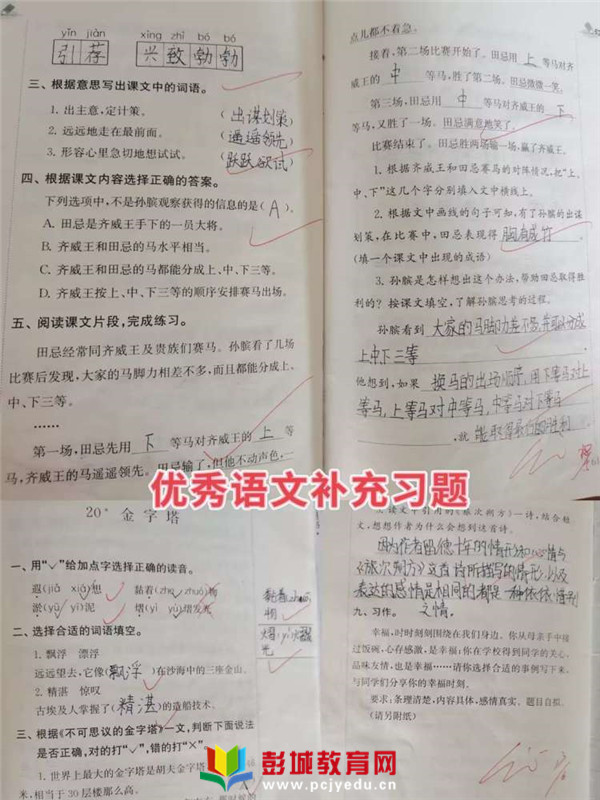 yǐn jiàn xìng zhì bó bó
引荐 兴致勃勃
三、根据意思写出课文中的词语。
1. 出主意,定计策。 (出谋划策)
2. 远远地走在最前面。 (遥遥领先)
3. 形容心里急切地想试试。 (跃跃欲试)
四、根据课文内容选择正确的答案。
下列选项中,不是孙膑观察获得的信息的是(A)。
A. 田忌是齐威王手下的一员大将。
B. 齐威王和田忌的马水平相当。
C. 齐威王和田忌的马都能分成上、中、下三等。
D. 齐威王按上、中、下三等的顺序安排赛马出场。
五、阅读课文片段,完成练习。
田忌经常同齐威王及贵族们赛马。孙膑看了几场
比赛后发现,大家的马脚力相差不多,而且都能分成上、
中、下三等。
……
第一场,田忌先用 下 等马对齐威王的 上 等
马,齐威王的马遥遥领先。田忌输了,但他不动声色,一
点儿都不着急。
接着,第二场比赛开始了。田忌用 上 等马对齐
威王的 中 等马,胜了第二场。田忌微微一笑。
第三场,田忌用 中 等马对齐威王的 下
等马,又胜了一场。田忌满意地笑了。
比赛结束了。田忌胜两场输一场,赢了齐威王。
1. 根据齐威王和田忌赛马的对阵情况,把“上、
中、下”这几个字分别填入文中横线上。
2. 根据文中画线的句子可知,有了孙膑的出谋
划策,在比赛中,田忌表现得 胸有成竹
(填一个课文中出现的成语)
3. 孙膑是怎样想出这个办法,帮助田忌取得胜
利的?按课文填空,了解孙膑思考的过程。
孙膑看到 大家的马脚力差不多,并可以分成
上中下三等
他想到,如果 换马的出场顺序,用下等马对上
等马,上等马对中等马,中等马对下等马
,就 能取得最后的胜利
优秀语文补充习题
20* 金字塔
一、用“✓”给加点字选择正确的读音。
遐(jiǎ xiá)想 黏着(zhe zhuó)物
淤(yū yǔ)泥 熠(yì yù)熠发光
二、选择合适的词语填空。
1. 飘浮 漂浮
远远望去,它像(飘浮)在沙海中的三座金山。
2. 精湛 惊叹
古埃及人掌握了(精湛)的造船技术。
三、根据《不可思议的金字塔》一文,判断下面说法
是否正确,对的打“✓”,错的打“×”。
1. 世界上最大的金字塔是胡夫金字塔
米,相当于30层楼那么高。
读文中引用的《旅次朔方》一诗,结合短
文,想想作者为什么会想到这首诗。
因为作者留德十年的情形和心情与
《旅次朔方》这首诗所描写的情形以及
表达的感情是相同的,都是一种依依惜别
之情。
九、习作。
幸福,时时刻刻围绕在我们身边。你从母亲手中接
过饭碗,心存感激,是幸福;你在学校得到同学的关心,
品味友情,也是幸福……请你选择合适的事例写下来,
与同学们分享你的幸福时刻。
要求:条理清楚,内容具体,感情真实。题目自拟。
(请另附纸)
彭城教育网
www.pcjyedu.cn